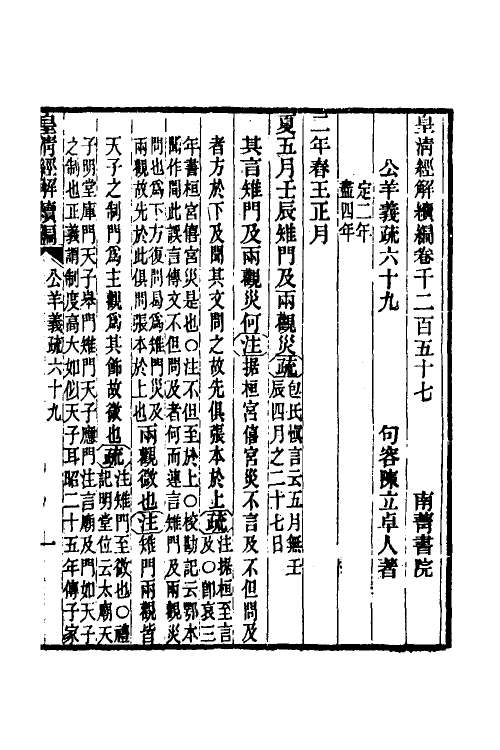 皇清經解續編卷千二百五十七　南菁書院
公羊義疏六十九　句容陳立卓人著
定二年
盡四年
二年春王正月
夏五月壬辰雉門及兩觀災疏包氏慎言云五月無壬
辰四月之二十七日
其言雉門及兩觀災何注据桓宮僖宮災不言及不但問及
者方於下及聞其文問之故先俱張本於上疏注据桓至言
及○卽哀三
年書桓宮僖宮災是也○注不但至於上○校勘記云鄂本
聞作間此誤言傳文不但問及者何而連言雉門及兩觀災
問也爲下方復問曷爲雉門災及
兩觀故先於此俱問張本於上也兩觀微也注雉門兩觀皆
天子之制門爲主觀爲其飾故微也疏注雉門至微也○禮
記明堂位云太廟天
子明堂庫門天子皋門雉門天子應門注言廟及門如天子
之制也正義謂制度高大如似天子耳昭二十五年傳子家
皇清經解續編　公羊義疏六十九　一